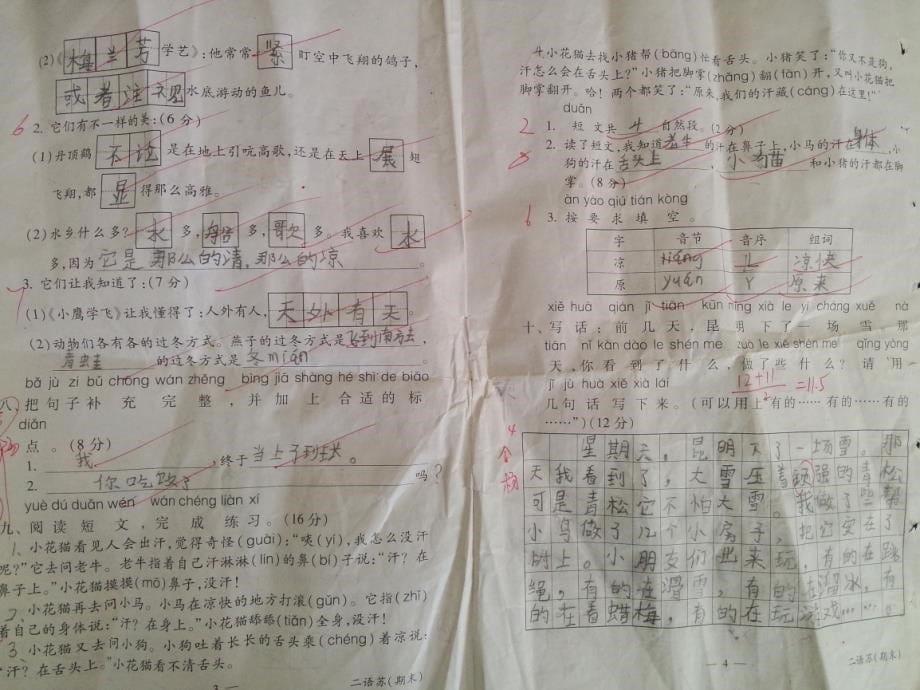 (2)《梅兰芳学艺》:他常常紧盯空中飞翔的鸽子,
或者注视水底游动的鱼儿。
6
2. 它们有不一样的美:(6分)
(1)丹顶鹤不论是在地上引吭高歌,还是在天上展翅
飞翔,都显得那么高雅。
(2)水乡什么多?水多,船多,歌多。我喜欢水
多,因为它是那么的清,那么的凉。
3. 它们让我知道了:(7分)
(1)《小鹰学飞》让我懂得了:人外有人,天外有天
(2)动物们各有各的过冬方式。燕子的过冬方式是飞到南方去,
青蛙的过冬方式是冬mián。
bǎ jù zi bǔ chōng wán zhěng bìng jiā shàng hé shì de biāo
八、把句子补充完整,并加上合适的标
diǎn
点。(8分)
1. 我,终于当上了班长
2. 你吃饭了吗?
yuè dú duǎn wén wán chéng liàn xí
九、阅读短文,完成练习。(16分)
1、小花猫看见人会出汗,觉得奇怪(guài):“咦(yí),我怎么没汗
呢?”它去问老牛。老牛指着自己汗淋淋(lín)的鼻(bí)子说:“汗?在
鼻子上。”小花猫摸摸(mō)鼻子,没汗!
2、小花猫再去问小马。小马在凉快的地方打滚(gǔn)。它指(zhǐ)
着自己的身体说:“汗?在身上。”小花猫舔舔(tiǎn)全身,没汗!
3 小花猫又去问小狗。小狗吐着长长的舌头乘(chéng)着凉说:
“汗?在舌头上。”小花猫看不清舌头。
— 3 —
二语苏(期末)
4.小花猫去找小猪帮(bāng)忙看舌头。小猪笑了:“你又不是狗,
汗怎么会在舌头上?”小猪把脚掌(zhǎng)翻(fān)开,又叫小花猫把
脚掌翻开。哈!两个都笑了:“原来,我们的汗藏(cáng)在这里!”
duàn
2
1. 短文共4自然段。(2分)
2. 读了短文,我知道老牛的汗在鼻子上,小马的汗在身体,小
狗的汗在舌头上,小猫和小猪的汗都在脚
掌。(8分)
àn yāo qiú tián kòng
6
3. 按要求填空。
字 音节 音序 组词
凉 liáng L 凉快
原 yuán Y 原来
xiě huà qián jǐ tiān kūn míng xià le yì chǎng xuě nà
十、写话:前几天,昆明下了一场雪。那
tiān nǐ kàn dào le shén me zuò le xiē shén me qǐng yòng
天,你看到了什么,做了些什么?请用
jǐ jù huà xiě xià lái
几句话写下来。(可以用上“有的……有的……有的
……”)(12分)
12+11
2
=11.5
星期天,昆明下了一场雪。那
天我看到了,大雪压着顽强的青松
可是青松它不怕大雪。我做了些帮
小鸟做了几个小房子,把它安在了
树上。小朋友们出来玩,有的在跳
绳,有的在滑雪,有的在溜冰,有
的在看蜡梅,有的在玩游戏……。
— 4 —
二语苏(期末)